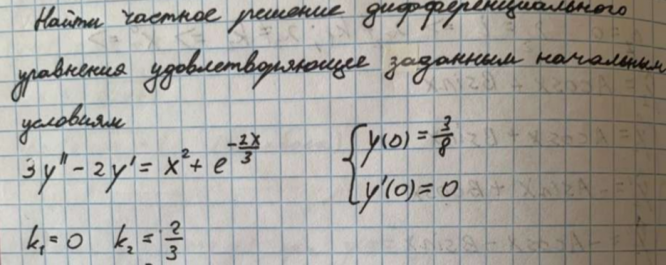 Найти частное решение дифференциального
уравнения удовлетворяющее заданным начальным
условиям
3y'' - 2y' = x² + e^(-2x/3)
{ y(0) = 3/8
y'(0) = 0
k₁ = 0 k₂ = 2/3